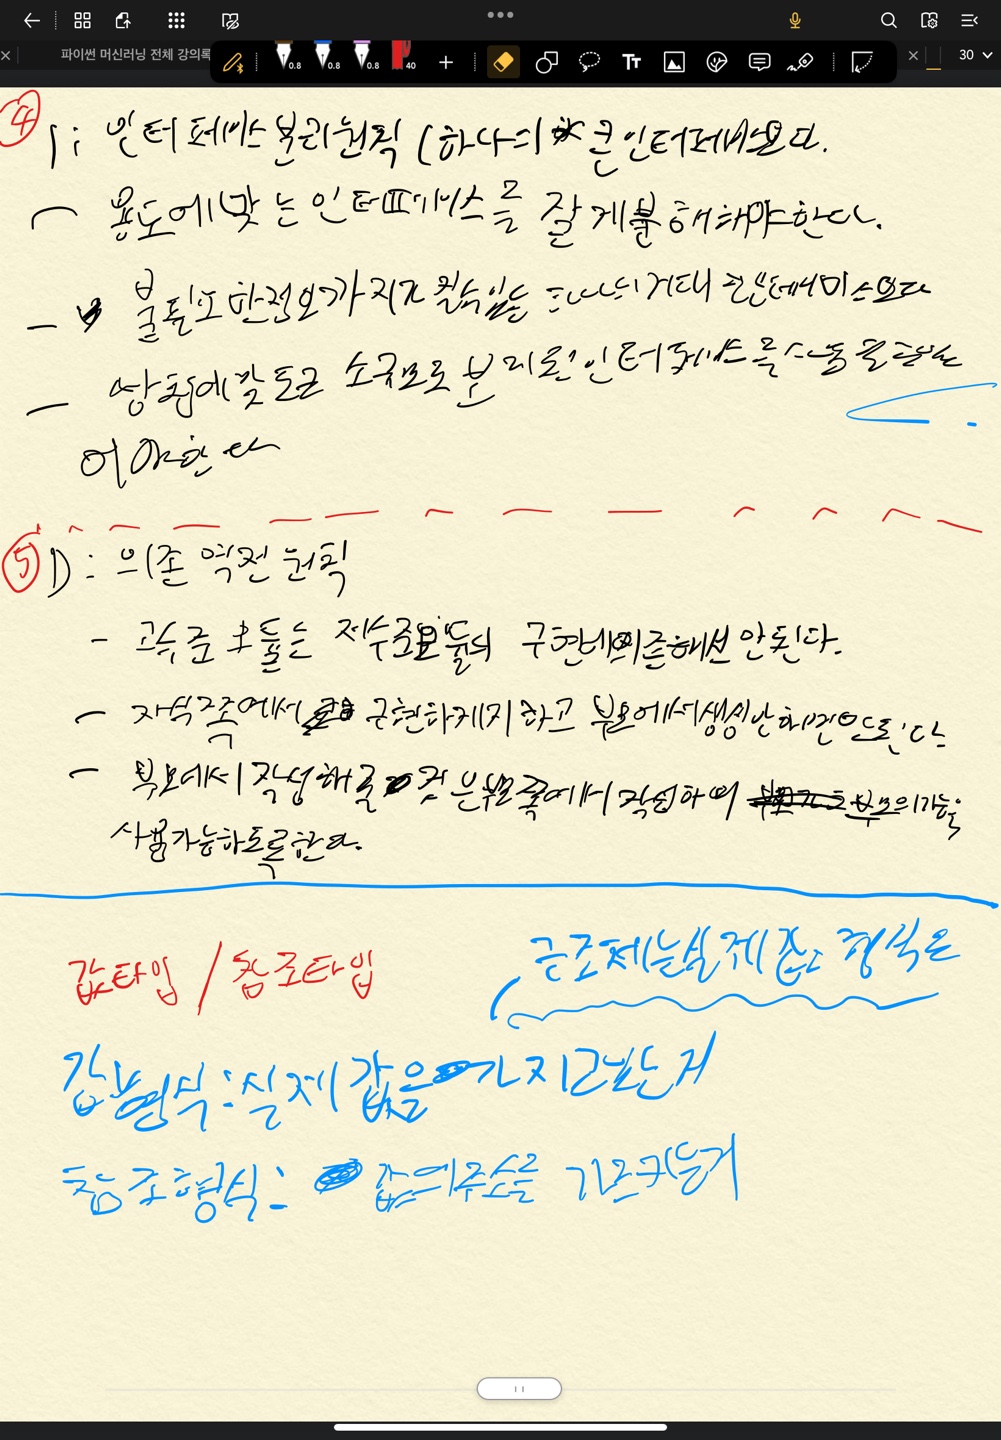 파이썬 머신러닝 전체 강의록
30
0.8
0.8
0.8
40
TT
④ I: 인터페이스 분리원칙 (하나의 큰 인터페이스보다.
용도에 맞는 인터페이스를 잘 게분해해야한다.
- 불필요한정보가 가지고 있는 하나의 거대 인터페이스보다
- 방침에 맞도록 소규모로 분리된 인터페이스를
어야한다
⑤ D: 의존 역전 원칙
- 고수준 모듈는 저수준모듈의 구현에의존해선 안된다.
- 자식쪽에서 구현하게지하고 부모에서생성만하면안된다
- 부모에서 작성해줄 것은부모쪽에서 작성하며 부모의기능을
사용가능하도록한다.
값타입 / 참조타입
구조체는실제값 형식은
값형식: 실제 값을 가지고있는거
참조형식: 값의주소를 가르키는거